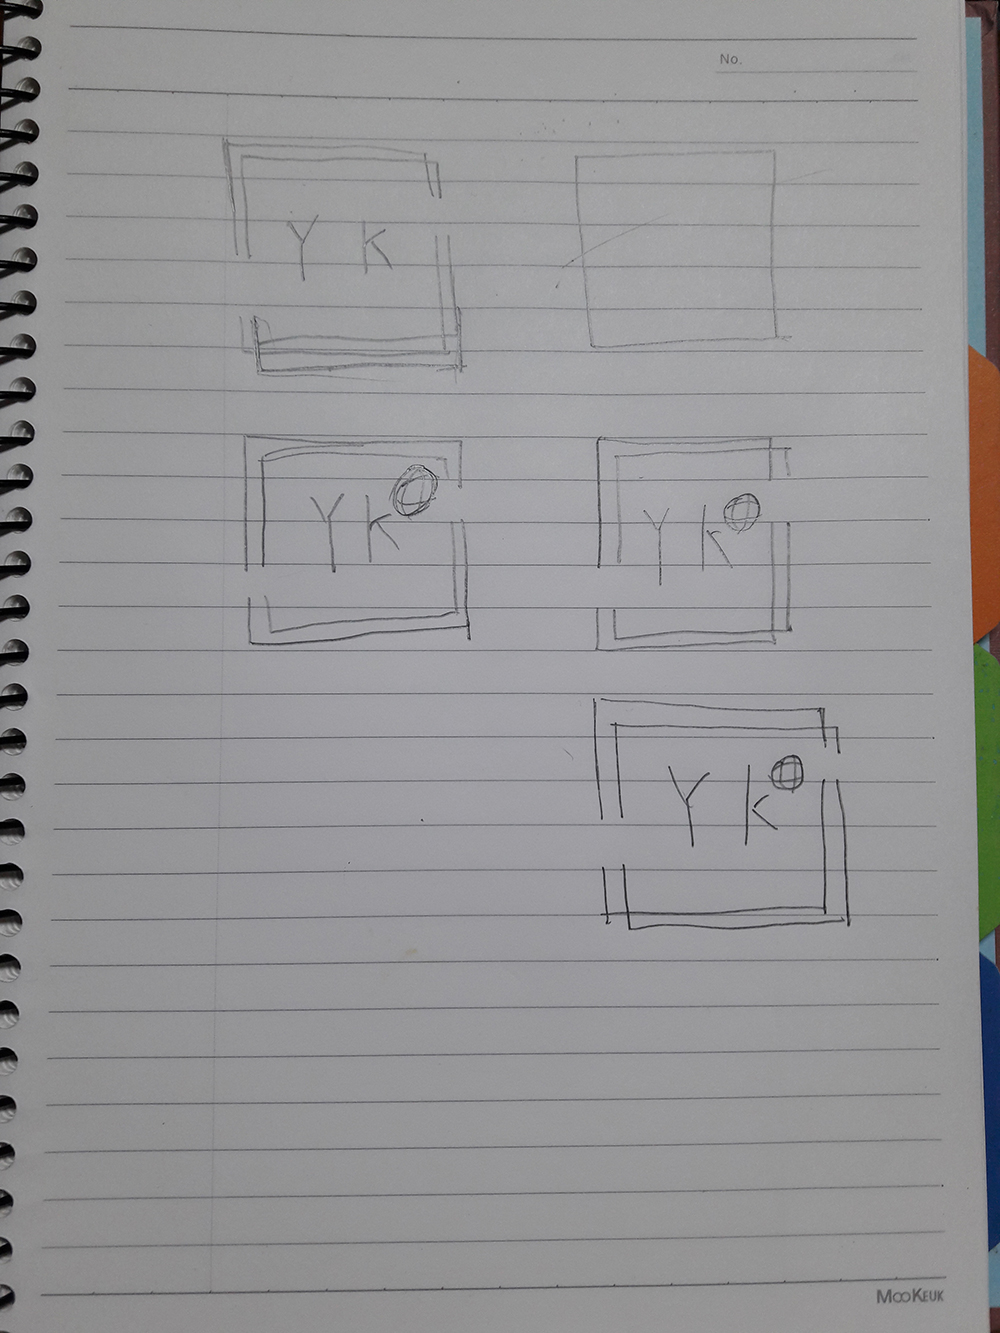 No.
Y K
Y K
Y K
Y K
MooKeuk